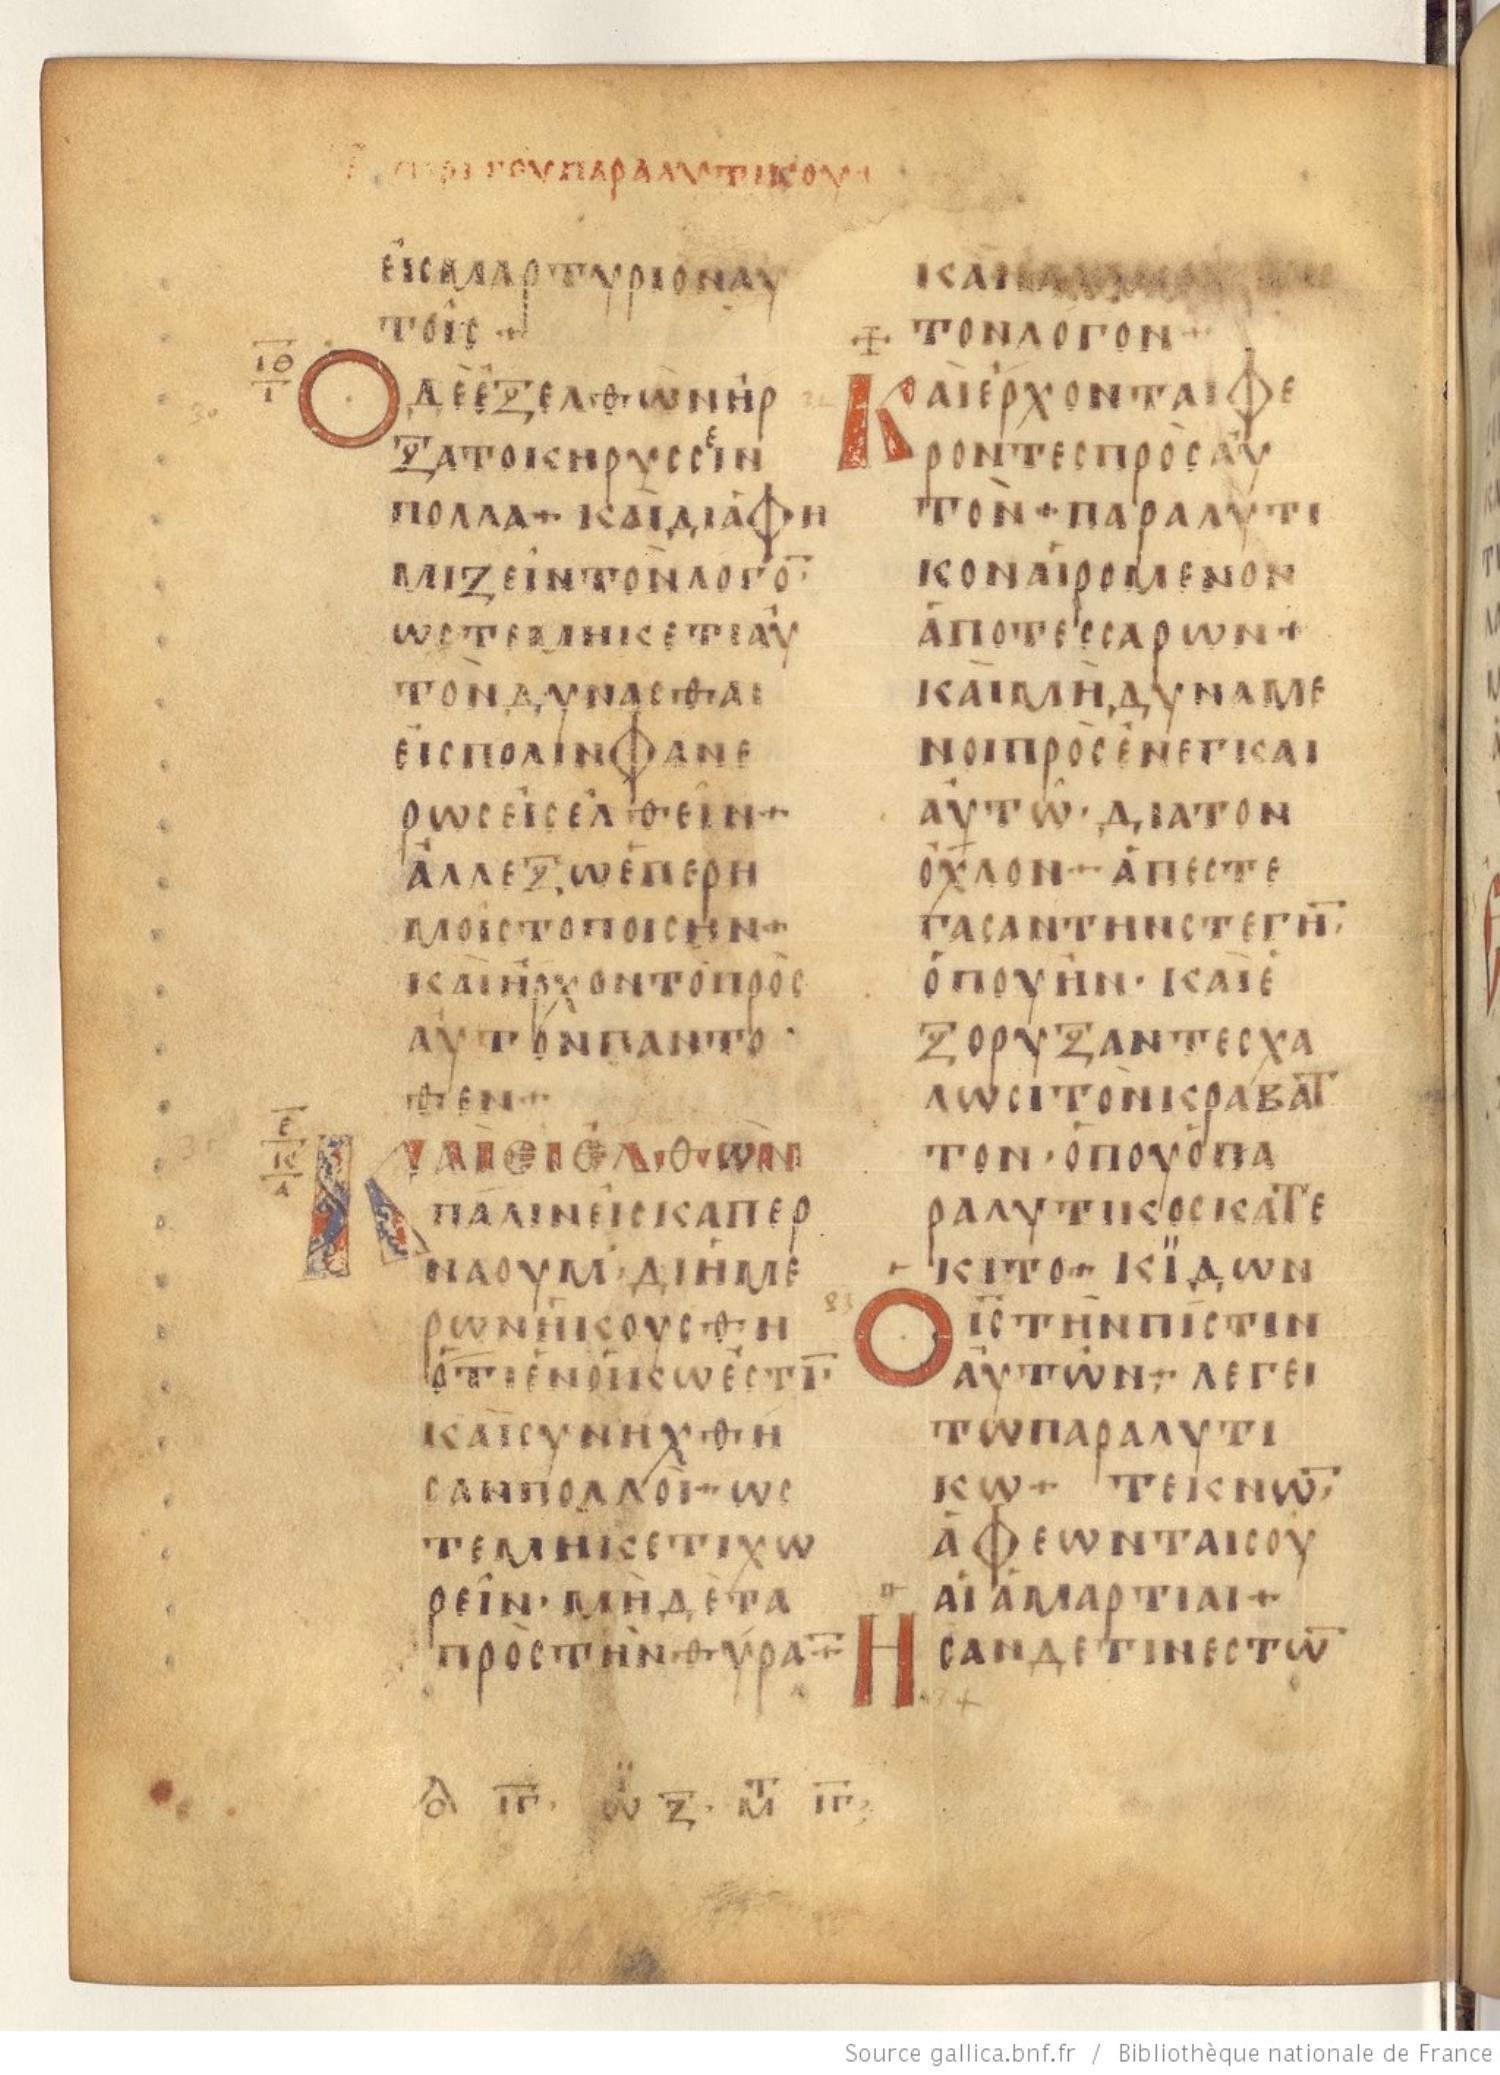 περι του παραλυτικου
εἰς μαρτυριον αυ
τοῖς +
ΙΘ
Γ
Ὁ δὲ ἐξελθὼν ἠρ
ξατο κηρυσσειν
πολλα + καὶ διαφη
μιζειν τὸν λογο̅
ωστε μηκετι αυ
τὸν δυνασθαι
εἰς πολιν φανε
ρως εἰσελθειν +
ἀλλ εξω ἐπ ερη
μοις τοποις ην +
καὶ ἠρχοντο πρὸς
αυτὸν παντο
θεν +
Ε
Κ
Α
Καὶ εισελθὼν
πάλιν εἰς καπερ
ναουμ · δι ἡμε
ρων ἠκουσθη
ὅτι ἐν οἴκω ἐστι̅
και συνηχθη
σαν πολλοὶ + ως
τε μηκετι χω
ρεῖν · μηδὲ τα
πρὸς τὴν θυρα̅ +
και
τον λογον +
Καὶ ἐρχονται φε
ροντες πρὸς αυ
τὸν + παραλυτι
κον αἰρομενον
ἀπο τεσσαρων +
καὶ μὴ δυναμε
νοι προσενεγκαι
αυτω · δια τον
ὀχλον + ἀπεστε
γασαν την στεγη̅
ὁπου ἠν · και ἐ
ξορυξαντες χα
λωσι τὸν κραβατ
τον · ὁπου ὁ πα
ραλυτικος κατε
κιτο + Κ ϊδων
Ὁ ι̅ς̅ τὴν πιστιν
αυτων + λεγει
τω παραλυτι
κω + τεκνω̅
ἀφεωνται σου
αἱ ἁμαρτιαι +
Ησαν δε τινες τω̅
ιγ · ζ · ιγ
Source gallica.bnf.fr / Bibliothèque nationale de France